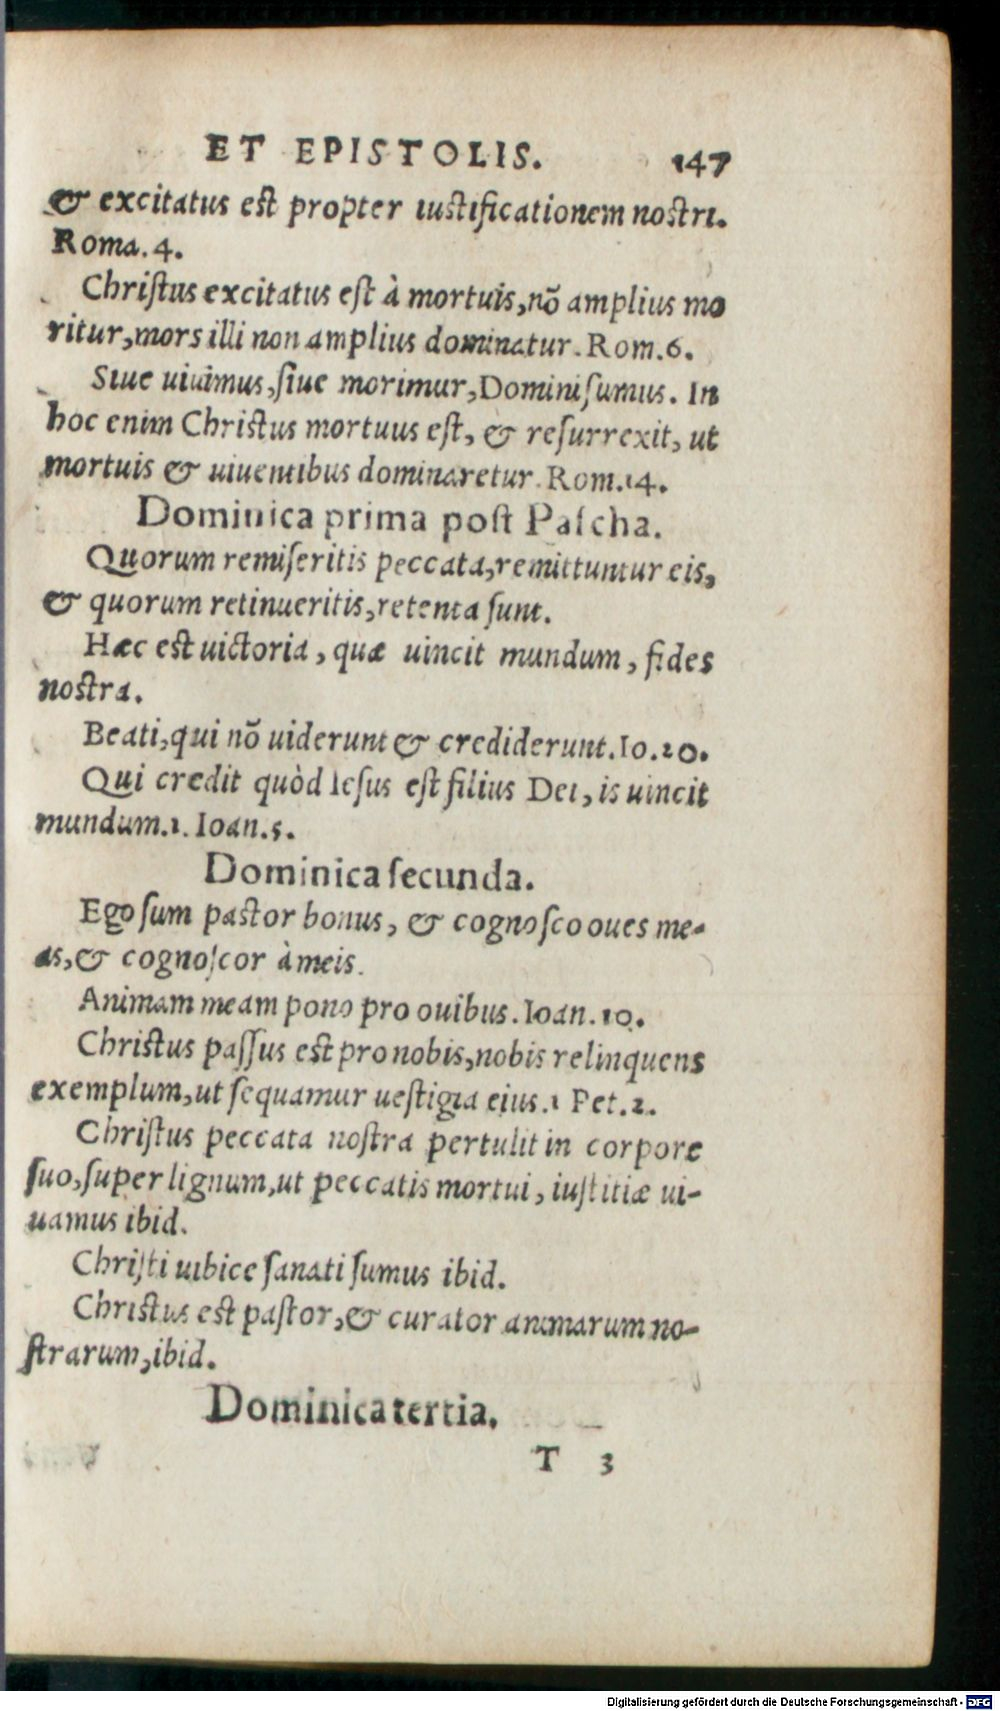 ET EPISTOLIS. 147
& excitatus est propter iustificationem nostri.
Roma. 4.
Christus excitatus est à mortuis, nõ amplius mo
ritur, mors illi non amplius dominatur. Rom. 6.
Siue uiuimus, siue morimur, Domini sumus. In
hoc enim Christus mortuus est, & resurrexit, ut
mortuis & uiuentibus dominaretur. Rom. 14.
Dominica prima post Pascha.
Quorum remiseritis peccata, remittuntur eis,
& quorum retinueritis, retenta sunt.
Hæc est uictoria, quæ uincit mundum, fides
nostra.
Beati, qui nõ uiderunt & crediderunt. Io. 20.
Qui credit quòd Iesus est filius Dei, is uincit
mundum. 1. Ioan. 5.
Dominica secunda.
Ego sum pastor bonus, & cognosco oues me-
as, & cognoscor à meis.
Animam meam pono pro ouibus. Ioan. 10.
Christus passus est pro nobis, nobis relinquens
exemplum, ut sequamur uestigia eius. 1 Pet. 2.
Christus peccata nostra pertulit in corpore
suo, super lignum, ut peccatis mortui, iustitiæ ui-
uamus ibid.
Christi uibice sanati sumus ibid.
Christus est pastor, & curator animarum no-
strarum, ibid.
Dominica tertia.
T 3
Digitalisierung gefördert durch die Deutsche Forschungsgemeinschaft - DFG